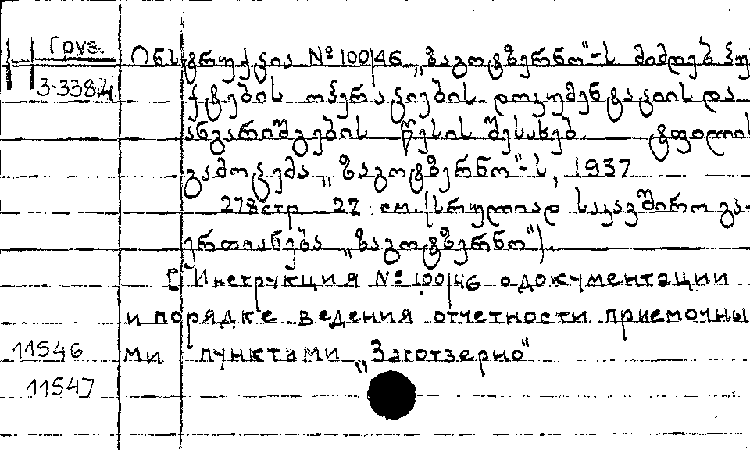 Груз.
3-3387
ინსტრუქცია №100/46 „ზაგოტზერნო"-ს მიმღებ პუ
ქტების ოპერაციების დოკუმენტაციის და
ანგარიშგების წესის შესახებ. ტფილის
გამოცემა „ზაგოტზერნო"-ს, 1937
278 стр 22 см. (სრულიად საკავშირო გა-
ერთიანება „ზაგოტზერნო").
[Инструкция №100/46 о документации
и порядке ведения отчетности приемочны
11546 ми пунктами „Заготзерно"
11547